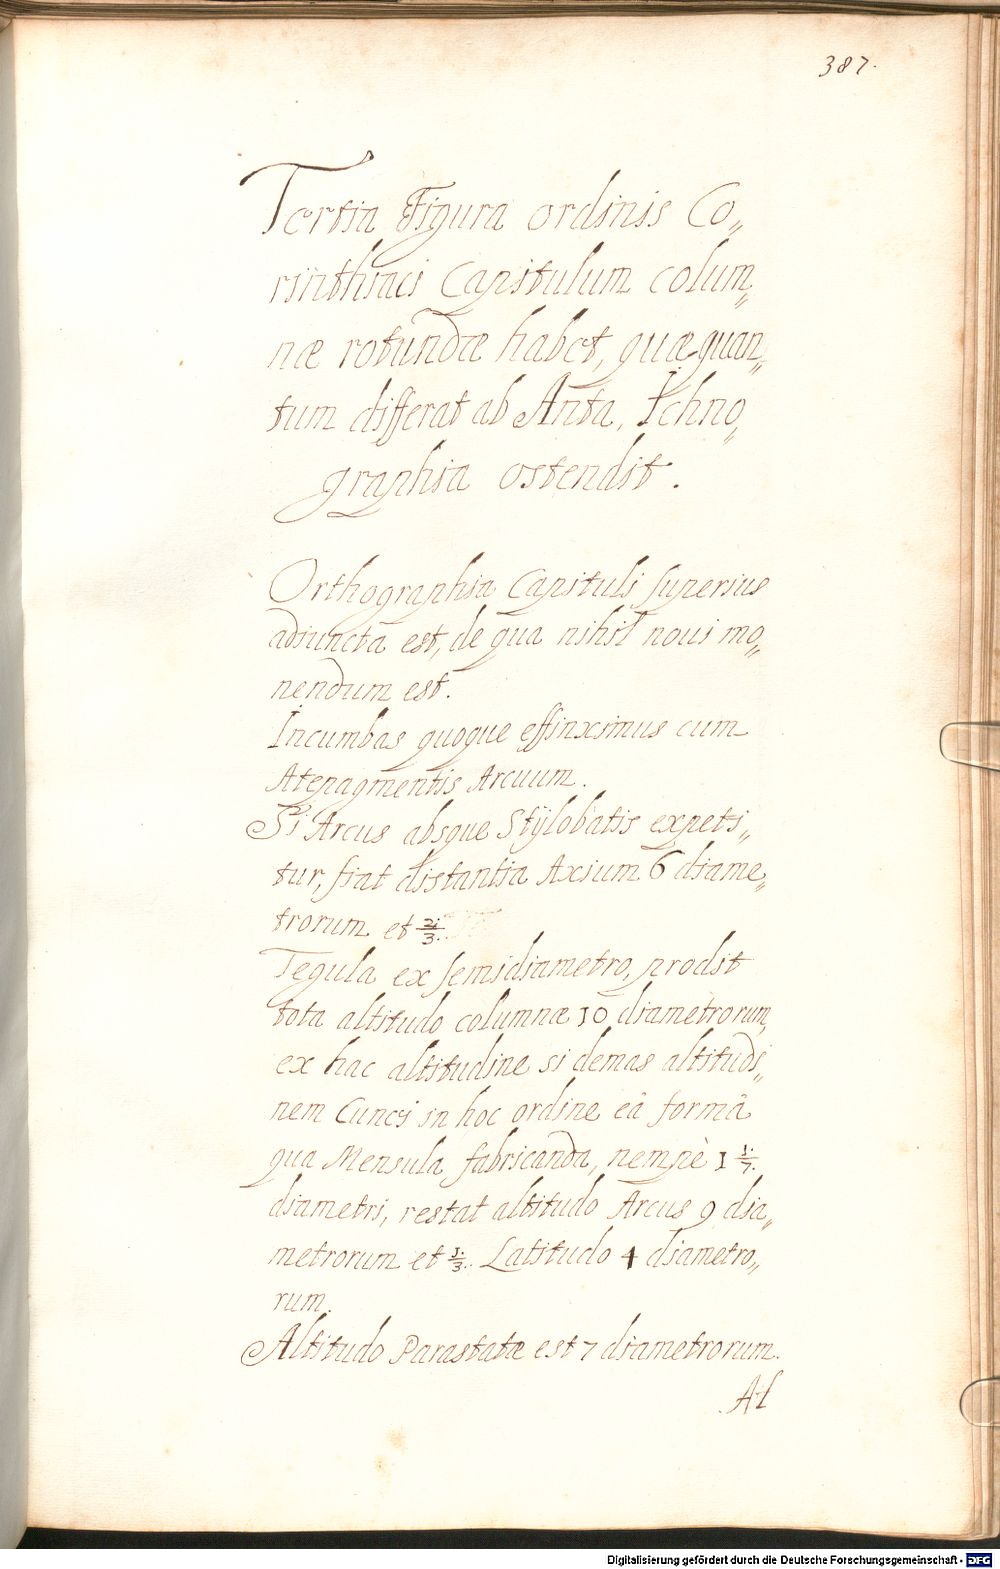 387.
Tertia Figura ordinis Co„
rinthiaci Capitulum colum„
næ rotundæ habet, quæ quan„
tum differat ab Anta, Ichno„
graphia ostendit.
Orthographia Capituli superius
adiuncta est, de qua nihil noui mo„
nendum est.
Incumbas quoque effinximus cum
Atepagmentis Arcuum.
Si Arcus absque Stÿlobatis expeti„
tur, fiat distantia Axium 6 diame„
trorum et 2/3.
Tegula ex semidiametro, prodit
tota altitudo columnæ 10 diametrorum,
ex hac altitudine si demas altitudi„
nem Cunei in hoc ordine eâ formâ
qua Mensula fabricanda, nempè 1 1/7.
diametri, restat altitudo Arcus 9 dia„
metrorum et 1/3. Latitudo 4 diametro„
rum.
Altitudo Parastatæ est 7 diametrorum.
Al
Digitalisierung gefördert durch die Deutsche Forschungsgemeinschaft - DFG